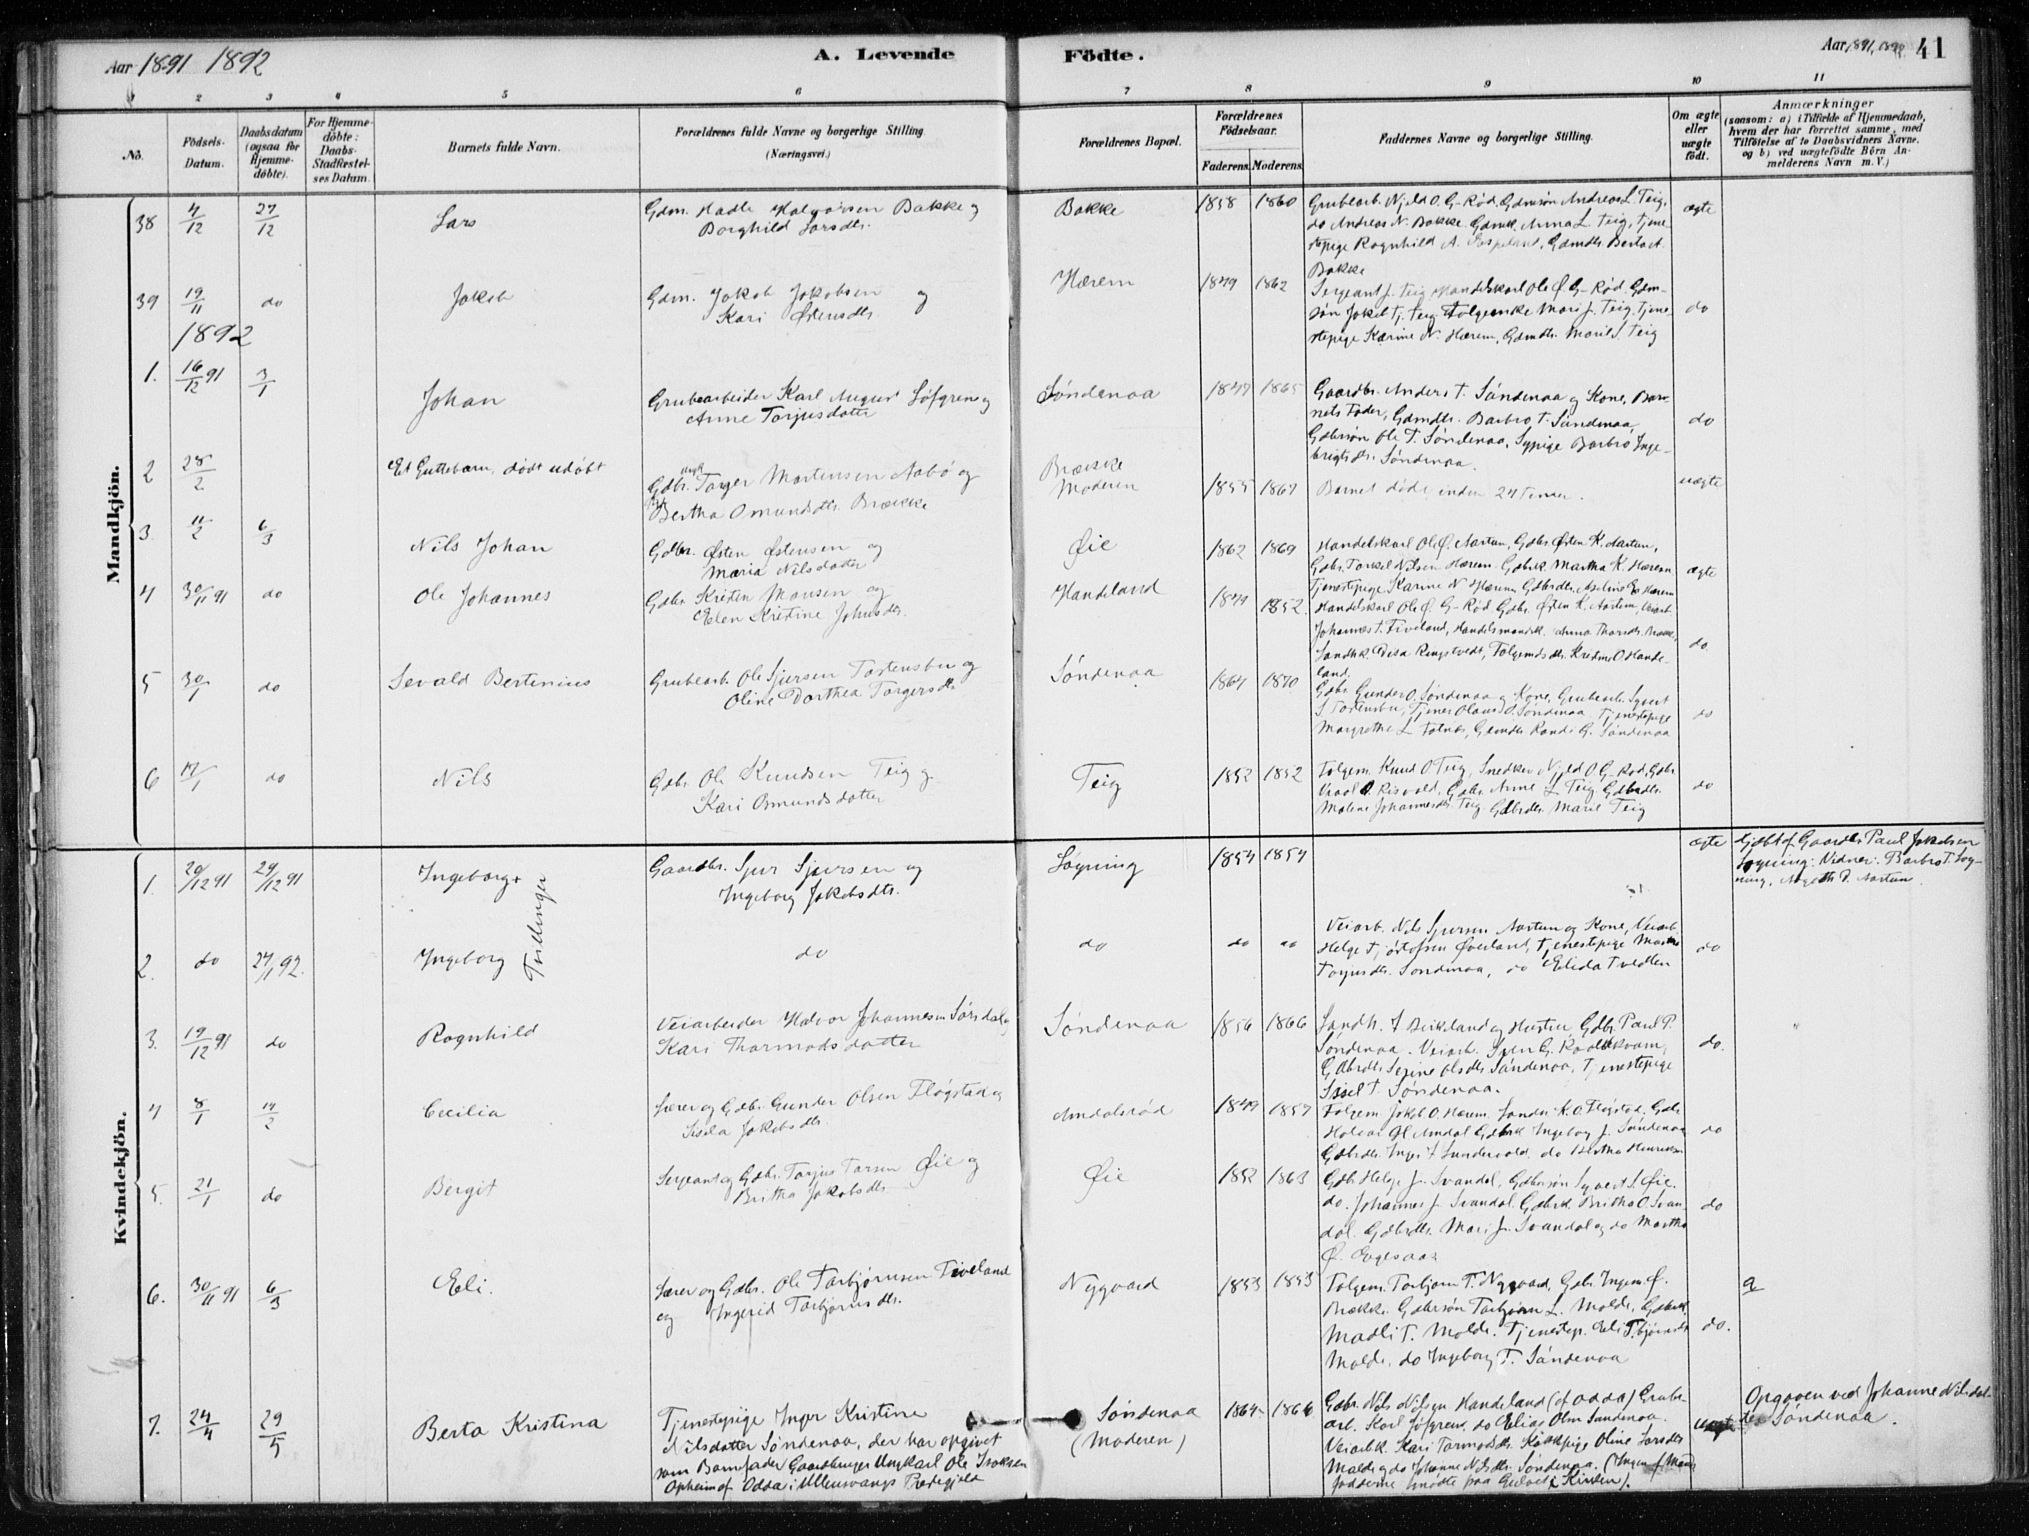 Aar 1891 1892
A. Levende
Födte.
Aar 1891, 1892. 41
1 2 3 4 5 6 7 8 9 10 11
No.
Födsels-Datum.
Daabsdatum (ogsaa for Hjemme-döbte).
For Hjemme-döbte: Daabs-Stadfæstel-ses Datum.
Barnets fulde Navn.
Forældrenes fulde Navne og borgerlige Stilling
(Næringsvei.)
Forældrenes Bopæl.
Forældrenes Födselsaar.
Faderens. Moderens.
Faddernes Navne og borgerlige Stilling.
Om ægte eller uægte födt.
Anmærkninger
(saasom: a) i Tilfælde af Hjemmedaab,
hvem der har forrettet samme, med
Tilföielse af to Daabsvidners Navne,
og b) ved uægtefödte Börn An-
melderens Navn m. V.)
Mandkjön.
38 4/12 27/12 Lars
Gdm. Hadle Halvorsen Bakke og
Borghild Larsdtr.
Bakke 1858 1860
Grubearb. Njeld O. G-Rød, Gdmsøn Andreas L. Teig,
do Andreas N. Bakke Gdmk. Anna L. Teig, Tjene-
stepige Ragnhild A. Espeland, Gdmdtr. Berta A.
Bakke
ægte
39 19/11 do Jakob
Gdm. Jakob Jakobsen og
Kari Østensdtr.
Hærem 1849 1862
Sergeant J. Teig, Handelskarl Ole Ø. G-Rød. Gdm-
søn Jakob Tj. Teig Folgeenke Mari J. Teig, Tjene-
stepige Karine N. Hærem, Gdmdtr. Marie S. Teig
do
1892
1. 16/12 91 3/1 Johan
Grubearbeider Karl August Løfgren og
Anne Torjusdatter
Søndenaa 1847 1865
Gaardbr. Anders T. Søndenaa og Kone, Bar-
nets Fader, Gdmdtr. Barbro T. Søndenaa
Gdbrsøn Ole T. Søndenaa, Sypige Barbro Inge-
brigtsdtr. Søndenaa.
do
2 28/2 Et Guttebarn, dødt udøbt
Gdbr. Torger Mortensen Nabø og
Bertha Omundsdtr. Brække
Brække
Moderen 1855 1867
Barnet døde inden 24 Timer.
uægte
3. 11/2 6/3 Nils Johan
Gdbr. Østen Østensen og
Maria Nilsdatter
Øie 1862 1869
Handelskarl Ole Ø. Aartun, Gdbr. Østen K. Aartun,
Gdbr. Torkel Nilsen Hærem. Gdbrk Martha K. Hærem
Tjenestepige Karine N. Hærem, Gdbrdtr. Aseline E. Hærem
ægte
4 30/11 91 do Ole Johannes
Gdbr. Kristen Monsen og
Elen Kristine Johnsdtr.
Handeland 1849 1852.
Handelskarl Ole Ø. G-Rød Gdbr. Østen K. Aartun, Veiarb
Johannes T. Fiveland, Handelsmandsk. Anna Thorsdtr.
Landhk. Disa Ringstvedt, Folgemdsdtr. Kristine O. Hande-
land.
do
5 30/1 do Sevald Bertinius
Grubearb. Ole Sjursen Tortensbu og
Oline Dorthea Torgersdtr
Søndenaa 1864 1870
Gdbr. Gunder O. Søndenaa og Kone, Grubearb. Syvert
S. Tortensbu, Tjener Olaus O. Søndenaa Tjenestepige
Margrethe L. Totnæs, Gdmdtr. Randi G. Søndenaa
do
6 17/1 do Nils
Gdbr. Ole Knudsen Teig og
Kari Osmundsdatter
Teig 1852 1852
Folgem. Knud O. Teig, Snedker Njeld O. G-Rød, Gdbr
O. Risvold, Gdbr. Arne L. Teig Gdbrdtr.
Malene Johannesdtr. Teig Gdbrdtr. Marie Teig
do
Kvindekjön.
1. 20/12 91 29/12 91 Ingeborg+
Tvillinger
Gaardbr. Sjur Sjursen og
Ingeborg Jakobsdtr.
Løgning 1854 1854
ægte
Hjdbt af Gaardbr. Paul Jakobsen
Løgning. Vidner: Barbro T. Løg-
ning, Aartun.
2. do 24/1 92. Ingeborg
do
do do do
Veiarb. Nils Sjursen Aartun og Kone, Veiarb.
Helge Tjøstolfsen Øverland, Tjenestepige Martha
Torjusdtr. Søndenaa, do Elida Tvedten
do
3. 19/12 91 do Ragnhild
Veiarbeider Halvor Johannesen Sørsdal og
Kari Thormodsdatter
Søndenaa 1856 1866
Landh. T. Birkeland og Hustru Gdbr. Paul P.
Søndenaa. Veiarb. Sven G. Raaldkvam,
Gdbrdtr. Serine Olsdtr Søndenaa, Tjenestepige
Sissel T. Søndenaa.
do.
4 8/1 14/2 Cecilia
Lærer og Gdbr. Gunder Olsen Fløgstad og
Sisela Jakobsdtr.
Amdalsrød 1849 1857
Folgem. Jakob O. Hærem. Landm K. O. Fløgstad, Gdbr.
Halvor H. Amdal Gdbrk Ingeborg J. Søndenaa
Gdbrdtr. Inger T. Sundevold do Bertha Henriksen
do
5. 21/1 do Bergit
Sergeant og Gdbr. Torjus Larsen Øie og
Britha Jakobsdtr.
Øie 1852 1863
Gdbr. Helge J. Svandal, Gdbrsøn Syvert S. Øie.
do. Johannes J. Svandal. Gdbrk. Britha O. Svan-
dal. Gdbrdtr. Mari J. Svandal og do Martha
Ø.
do
6. 30/11 91 6/3 Eli.
Lærer og Gdbr. Ole Torbjørnsen Fiveland
og Ingerid Torbjørnsdtr.
Nygaard 1853 1853
Folgem. Torbjørn T. Nygaard, Gdbr. Ingem. Ø.
Brække. Gdbrsøn Torbjørn L. Molde, Gdbrk.
Madli T. Molde. Tjenestep. Eli T.bjørnsdt
Molde, do Ingeborg T. Søndenaa
do.
a
7. 24/4 29/5 Berta Kristina
Tjenestepige Inger Kristine
Nilsdatter Søndenaa, der har opgivet
som Barnfader Gaardbruger Ungkarl Ole Isaksen
Opheim af Odda i Ullensvangs Prestegjeld
Søndenaa
(Moderen) 1864 1866
Gdbr. Nils Nilsen Handeland (af Odda) Grube-
arb. Karl Løfgren, do Elias Olsen Søndenaa.
Veiarbk. Kari Tormodsdtr. Kokkepige Oline Larsdtr
Molde og do Johanne Nilsdtr. Søndenaa. (Ingen af Mands
fadderne mødte paa Gulvet i Kirken).
uægte
Opgaven ved Johanne Nilsdat-
ter Søndenaa.